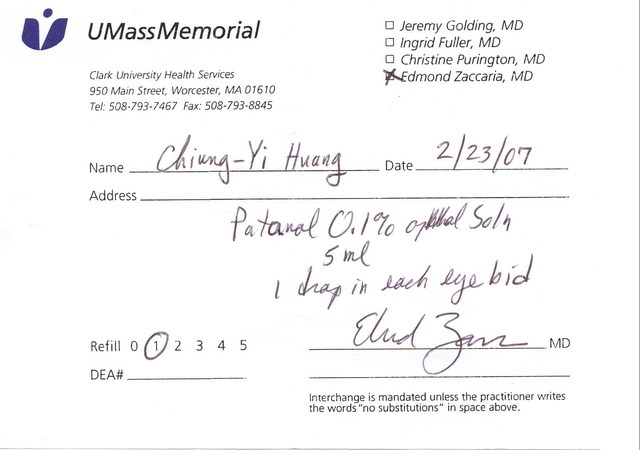 UMassMemorial
Clark University Health Services
950 Main Street, Worcester, MA 01610
Tel: 508-793-7467 Fax: 508-793-8845
☐ Jeremy Golding, MD
☐ Ingrid Fuller, MD
☐ Christine Purington, MD
☒ Edmond Zaccaria, MD
Name Chiung-Yi Huang Date 2/23/07
Address
Patanol 0.1% Soln
5 ml
1 drop in each eye bid
Refill 0 1 2 3 4 5 MD
DEA#
Interchange is mandated unless the practitioner writes
the words "no substitutions" in space above.